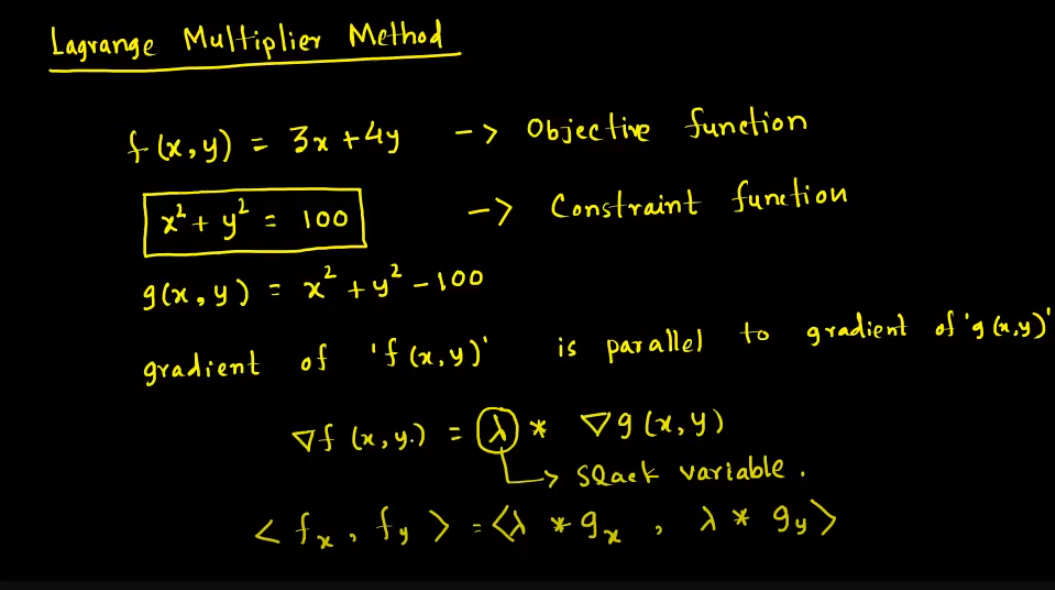 Lagrange Multiplier Method
f(x,y) = 3x+4y -> Objective function
x² + y² = 100 -> Constraint function
g(x,y) = x² + y² - 100
gradient of 'f(x,y)' is parallel to gradient of 'g(x,y)'
∇f(x,y.) = λ * ∇g(x,y)
↳ Slack variable.
< fx, fy > = <λ * gx, λ * gy>